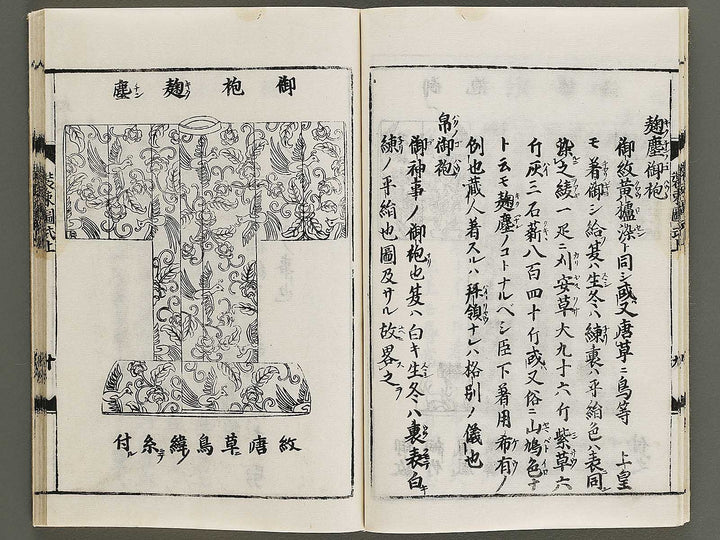 麹塵御袍
御紋黄櫨染ト同シ或又唐草ニ鳥等　上皇
モ着御シ給夏ハ生冬ハ練裏ハ平絹色ハ表同
染之綾一疋ニ刈安草大九十六斤紫草六
斤灰三石薪八百四十斤或又俗ニ山鳩色ナ
ト云モ麹塵ノコトナルベシ臣下着用希有ノ
例也蔵人着スルハ拝領ナレハ格別ノ儀也
帛御袍
御神事ノ御袍也夏ハ白キ生冬ハ裏表白
練ノ平絹也圖及サル故畧之
御袍麹塵
紋唐草鳥緯糸付
装束圖式上
十